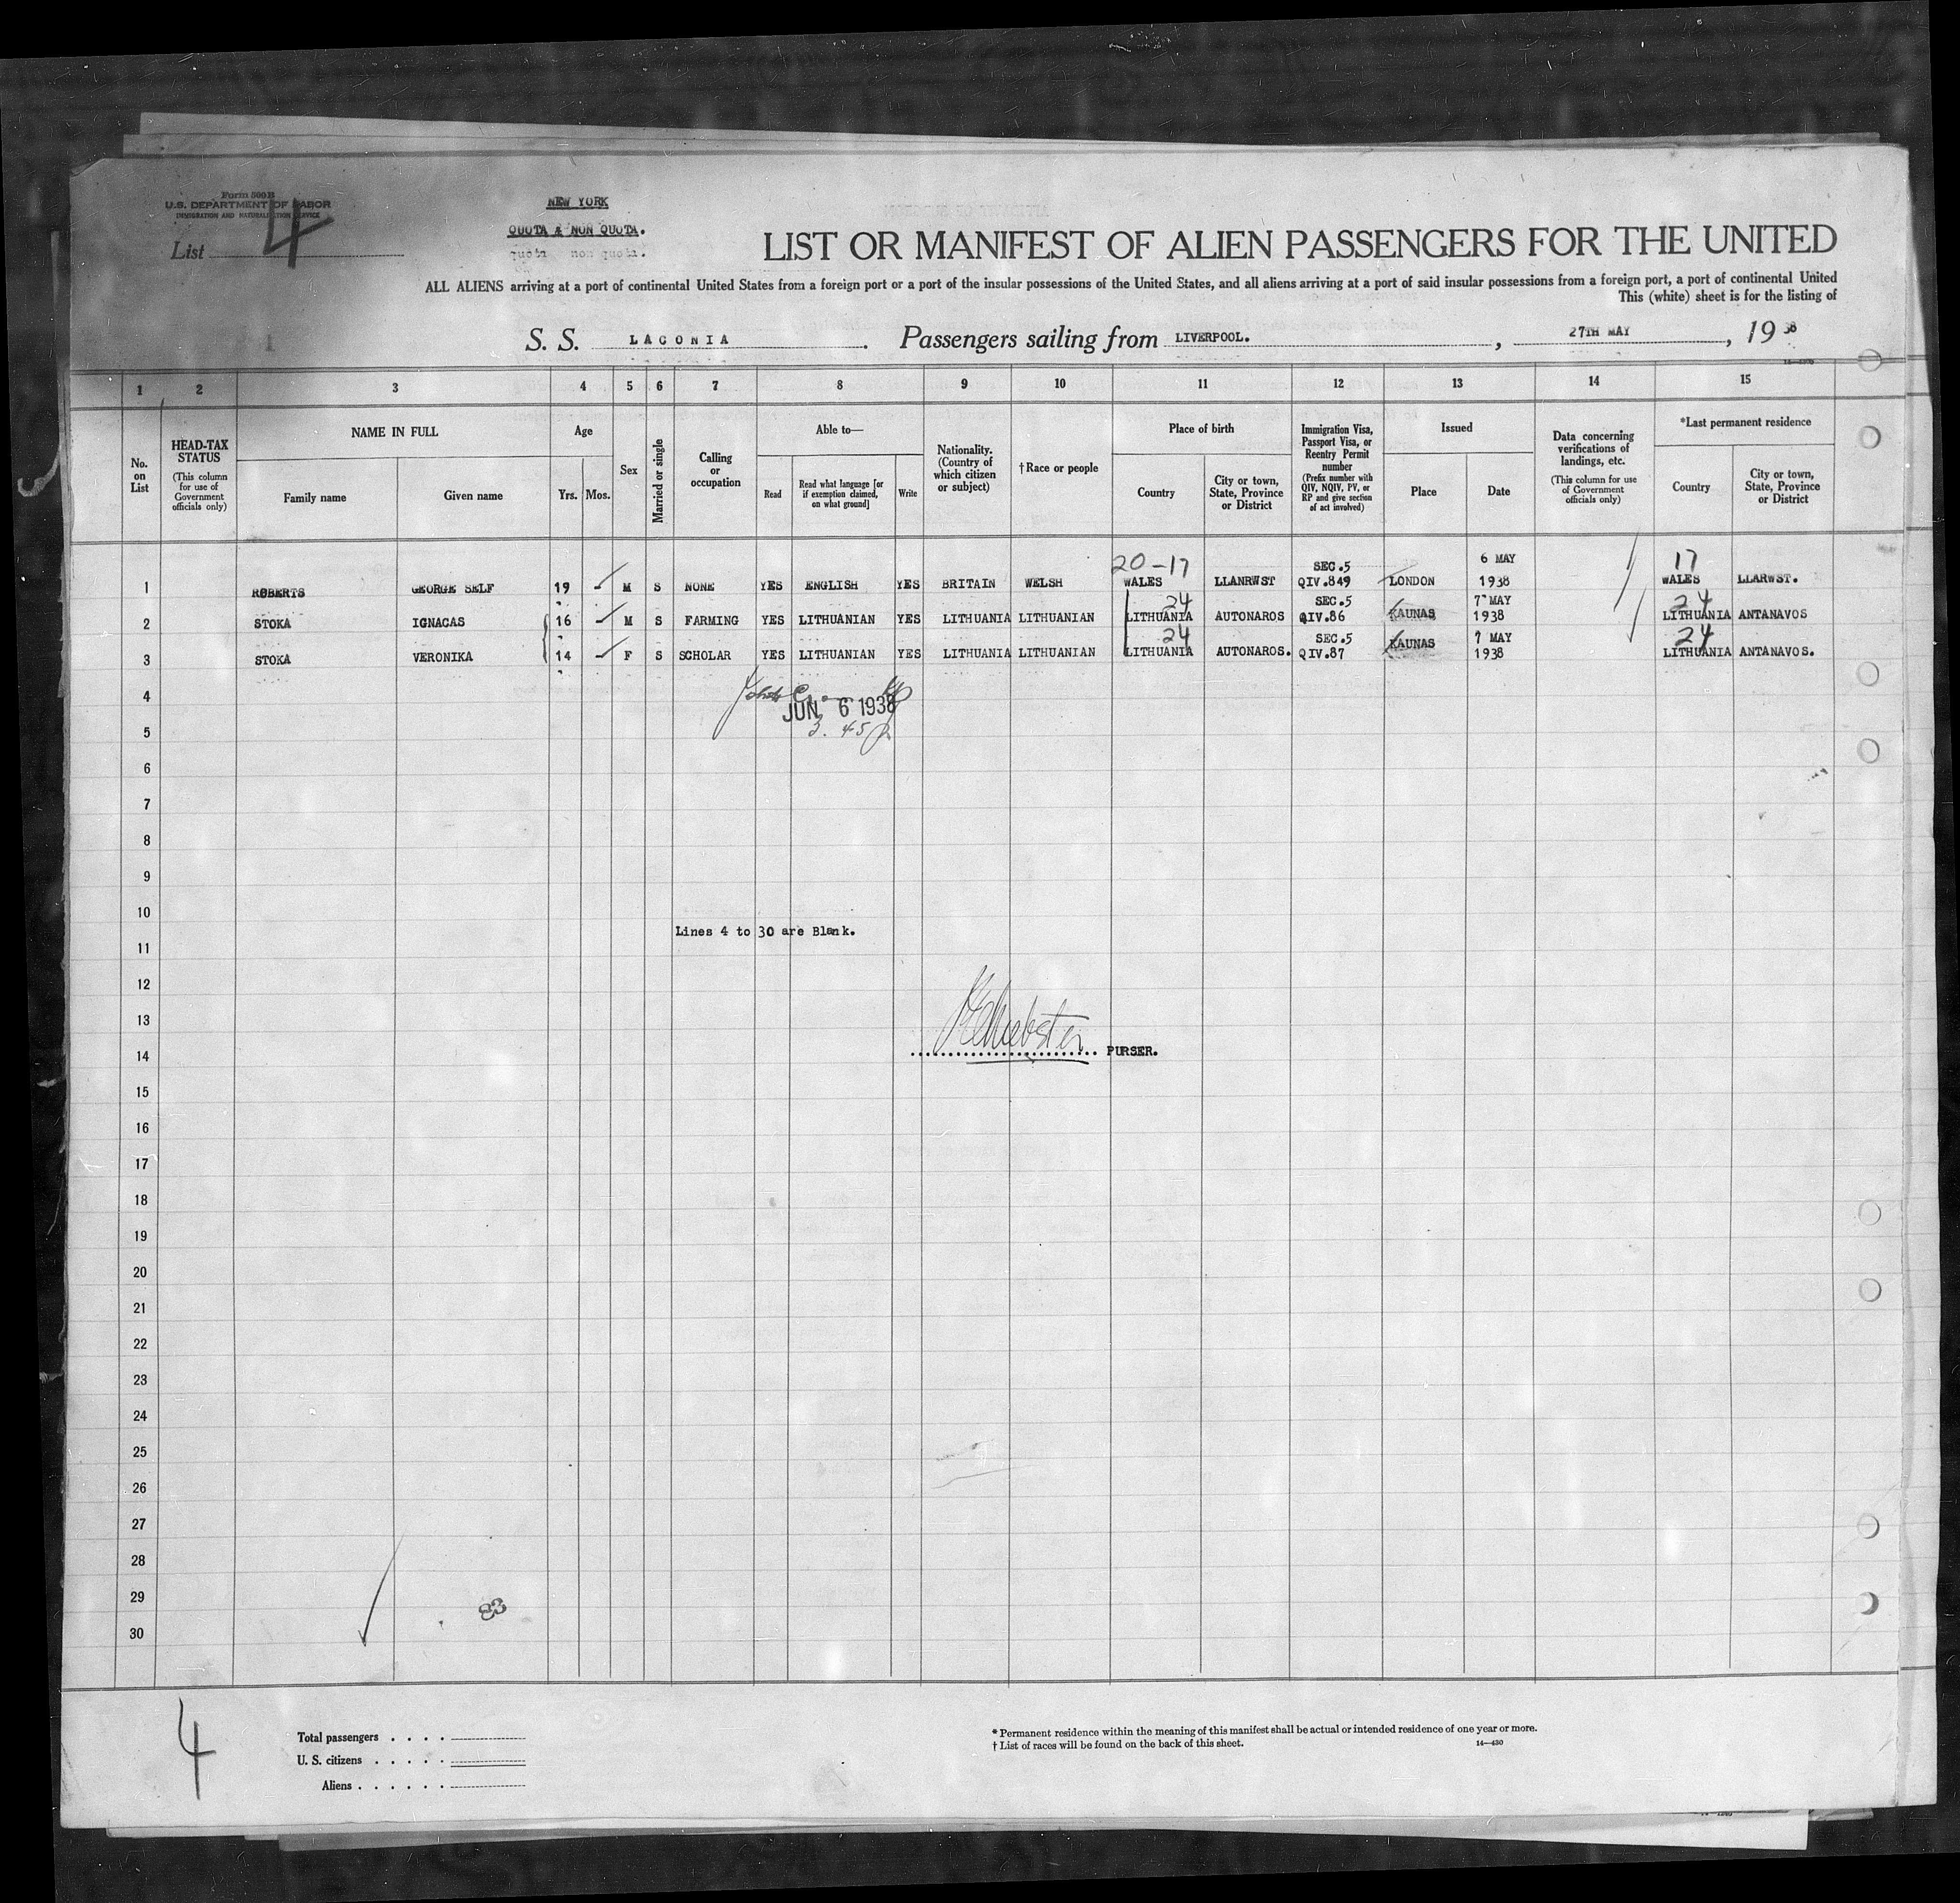 Form 500 B
U.S. DEPARTMENT OF LABOR
IMMIGRATION AND NATURALIZATION SERVICE
List 4
NEW YORK
QUOTA & NON QUOTA.
quota non quota.
LIST OR MANIFEST OF ALIEN PASSENGERS FOR THE UNITED
ALL ALIENS arriving at a port of continental United States from a foreign port or a port of the insular possessions of the United States, and all aliens arriving at a port of said insular possessions from a foreign port, a port of continental United
This (white) sheet is for the listing of
S. S. LACONIA . Passengers sailing from LIVERPOOL. , 27TH MAY , 19 38
1 2 3 4 5 6 7 8 9 10 11 12 13 14 15
No. on List
HEAD-TAX STATUS (This column for use of Government officials only)
NAME IN FULL
Family name Given name
Age
Yrs. Mos.
Sex
Married or single
Calling or occupation
Able to—
Read Read what language [or if exemption claimed, on what ground] Write
Nationality. (Country of which citizen or subject)
†Race or people
Place of birth
Country City or town, State, Province or District
Immigration Visa, Passport Visa, or Reentry Permit number (Prefix number with QIV, NQIV, PV, or RP and give section of act involved)
Issued
Place Date
Data concerning verifications of landings, etc. (This column for use of Government officials only)
*Last permanent residence
Country City or town, State, Province or District
20-17 SEC.5 6 MAY 17
1 ROBERTS GEORGE SELF 19 M S NONE YES ENGLISH YES BRITAIN WELSH WALES LLANRWST QIV.849 LONDON 1938 WALES LLARWST.
24 SEC.5 7 MAY 24
2 STOKA IGNACAS 16 M S FARMING YES LITHUANIAN YES LITHUANIA LITHUANIAN LITHUANIA AUTONAROS QIV.86 KAUNAS 1938 LITHUANIA ANTANAVOS
24 SEC.5 7 MAY 24
3 STOKA VERONIKA 14 F S SCHOLAR YES LITHUANIAN YES LITHUANIA LITHUANIAN LITHUANIA AUTONAROS. QIV.87 KAUNAS 1938 LITHUANIA ANTANAVOS.
4
JUN 6 1938
5
3.45 p
6
7
8
9
10
Lines 4 to 30 are Blank.
11
12
13
14 Webster PURSER.
15
16
17
18
19
20
21
22
23
24
25
26
27
28
29
83
30
4
Total passengers . . . .
U. S. citizens . . . . .
Aliens . . . . . .
* Permanent residence within the meaning of this manifest shall be actual or intended residence of one year or more.
† List of races will be found on the back of this sheet.
14—430